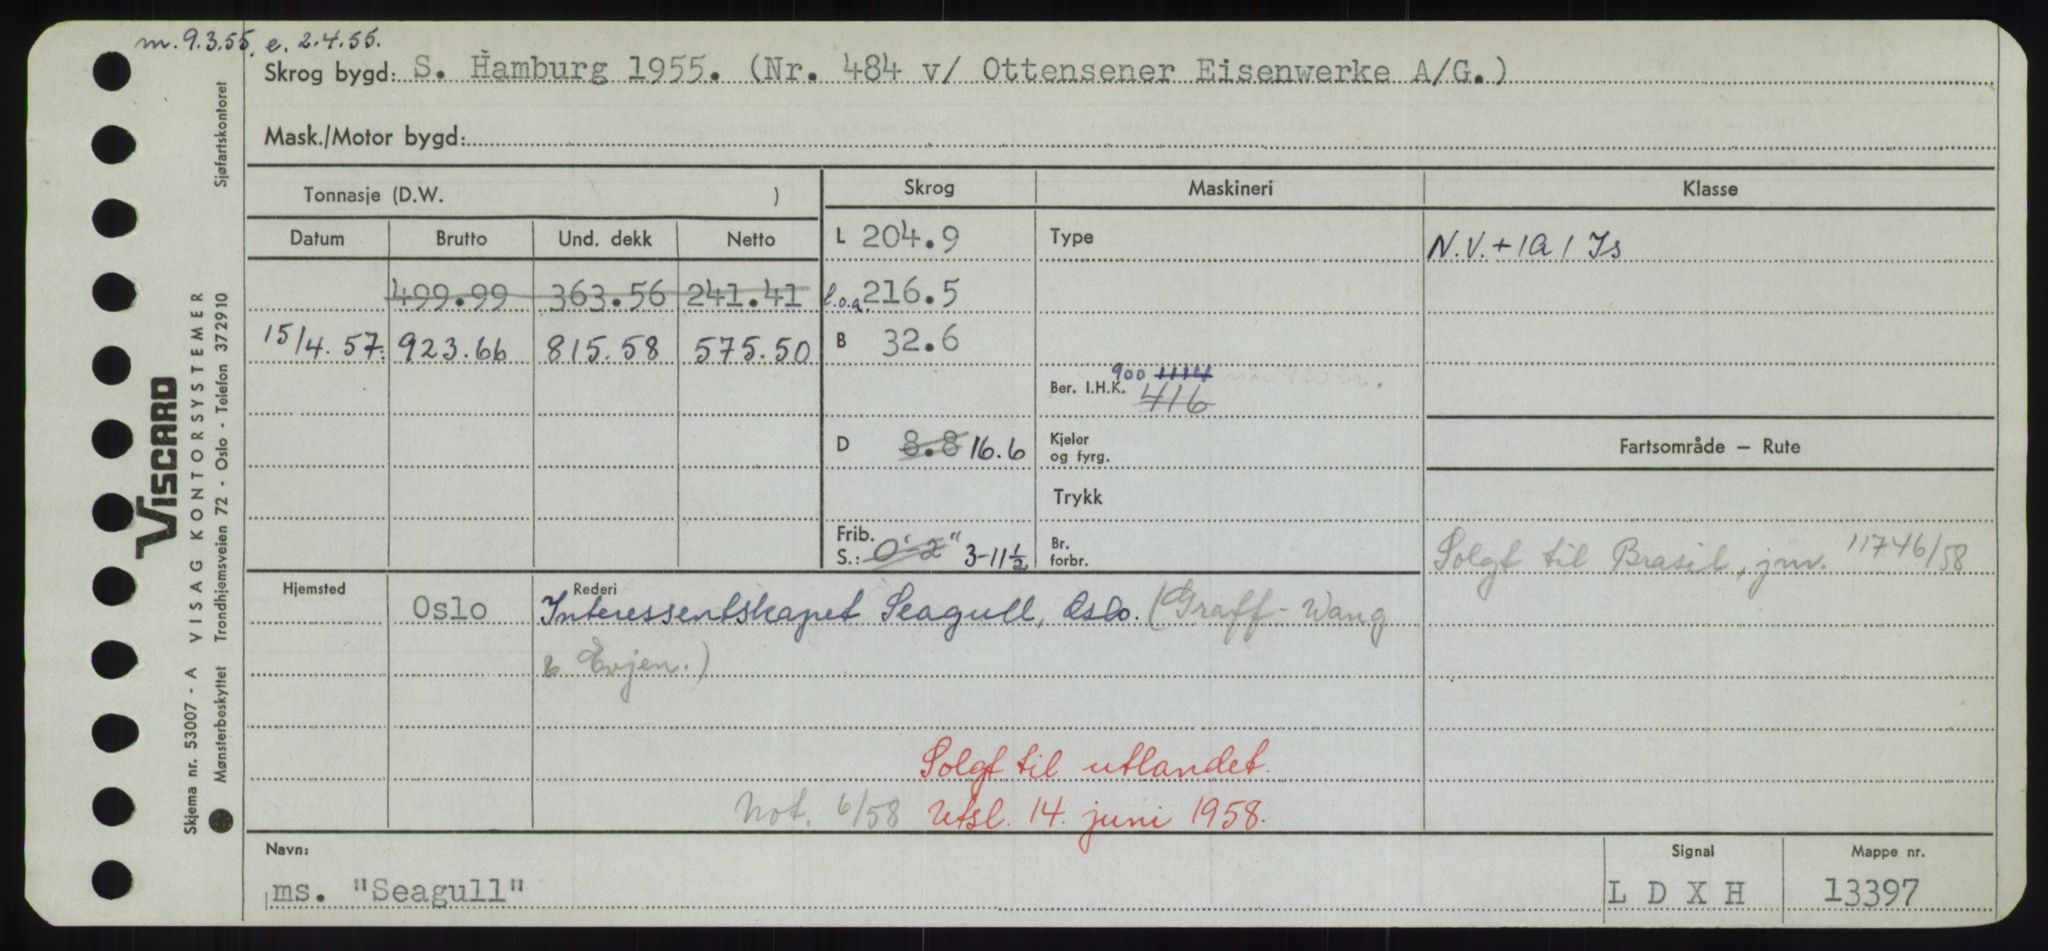 m. 9.3.55. e. 2.4.55.
Skrog bygd: S. Hamburg 1955. (Nr. 484 v/ Ottensener Eisenwerke A/G.)
Mask./Motor bygd:
Tonnasje (D.W. )
Skrog Maskineri Klasse
Datum Brutto Und. dekk Netto
L 204.9 Type N.V. + 1A 1 Is
499.99 363.56 241.41 l.o.a. 216.5
15/4. 57. 923.66 815.58 575.50 B 32.6
Ber. I.H.K. 900 1114
416
D 8.8 16.6 Kjeler
og fyrg.
Fartsområde — Rute
Trykk
Frib.
S.: 0' 2" 3-11½ Br.
forbr.
Solgt til Brasil, jnr. 11746/58
Hjemsted Rederi
Oslo Interessentskapet Seagull, Oslo. (Graff-Wang
& Evjen.)
Solgt til utlandet.
Not. 6/58 Utsl. 14. juni 1958.
Navn: Signal Mappe nr.
ms. "Seagull" L D X H 13397
Sjøfartskontoret
VISCARD
Skjema nr. 53007 - A VISAG KONTORSYSTEMER
Mønsterbeskyttet Trondhjemsveien 72 - Oslo - Telefon 372910